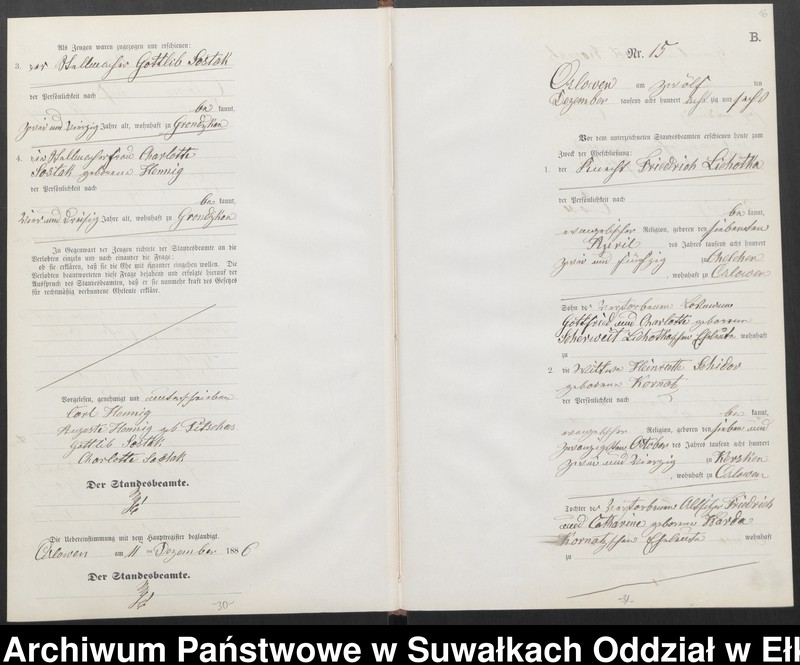 Als Zeugen waren zugezogen und erschienen:
3. der Stellmacher Gottlib Sostak
der Persönlichkeit nach
be kannt,
zwei und vierzig Jahre alt, wohnhaft zu Grondzken
4. die Stellmacherfrau Charlotte
Sostak geborene Hennig
der Persönlichkeit nach
be kannt,
vier und dreißig Jahre alt, wohnhaft zu Grondzken
In Gegenwart der Zeugen richtete der Standesbeamte an die
Verlobten einzeln und nach einander die Frage:
ob sie erklären, daß sie die Ehe mit einander eingehen wollen. Die
Verlobten beantworteten diese Frage bejahend und erfolgte hierauf der
Ausspruch des Standesbeamten, daß er sie nunmehr kraft des Gesetzes
für rechtmäßig verbundene Eheleute erkläre.
Vorgelesen, genehmigt und unterschrieben
Carl Hennig
Auguste Hennig geb
Gottlib Sostak
Charlotte Sostak
Der Standesbeamte.
Die Uebereinstimmung mit dem Hauptregister beglaubigt.
Orlowen am 11 ten Dezember 188 6
Der Standesbeamte.
-30-
B.
Nr. 15
Orlowen am zwölf ten
Dezember tausend acht hundert acht zig und sechs
Vor dem unterzeichneten Standesbeamten erschienen heute zum
Zweck der Eheschließung:
1. der Knecht Friedrich Lichotka
der Persönlichkeit nach
be kannt,
evangelischer Religion, geboren den siebenten
April des Jahres tausend acht hundert
zwei und fünfzig zu Chelchen
, wohnhaft zu Orlowen
Sohn der verstorbenen Losmann
Gottfried und Charlotte geborenen
Scherweit Lichotkaschen Eheleute wohnhaft
zu
2. die Wittwe Heinriette Schidor
geborene Kornatz
der Persönlichkeit nach
be kannt,
evangelischer Religion, geboren den sieben und
zwanzigsten Oktober des Jahres tausend acht hundert
zwei und vierzig zu Kerschken
, wohnhaft zu Orlowen
Tochter der verstorbenen Altsitzer Friedrich
und Catharine geborene Karda
Kornatzschen Eheleute wohnhaft
zu
-31-
Archiwum Państwowe w Suwałkach Oddział w Ełk